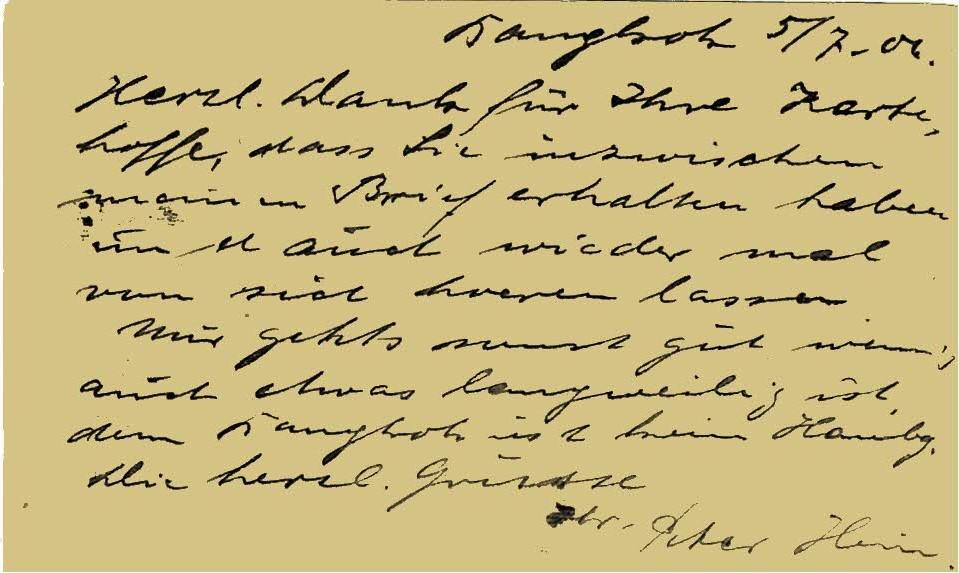 Bangkok 5/7-06.
Herzl. Dank für Ihre Karte,
hoffe, dass Sie inzwischen
meinen Brief erhalten haben
und auch wieder mal
von sich hoeren lassen
Mir gehts sonst gut wenn's
auch etwas langweilig ist
denn Bangkok ist kein Hambg.
Die herzl. Grüsse
Peter Hein